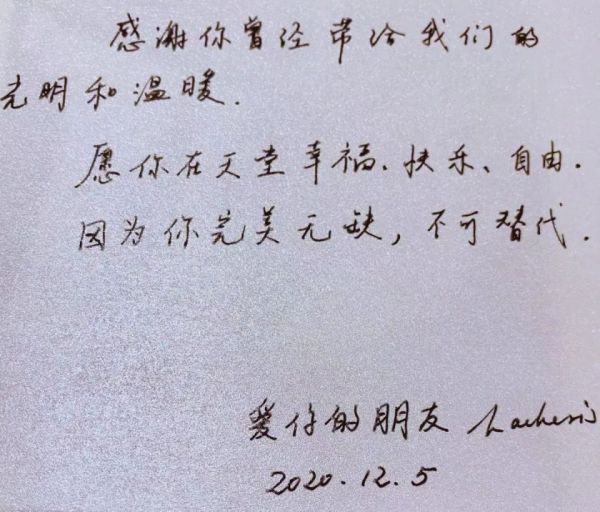 感谢你曾经带给我们的
光明和温暖.
愿你在天堂幸福、快乐、自由.
因为你完美无缺，不可替代.
爱你的朋友 Lachesis
2020.12.5